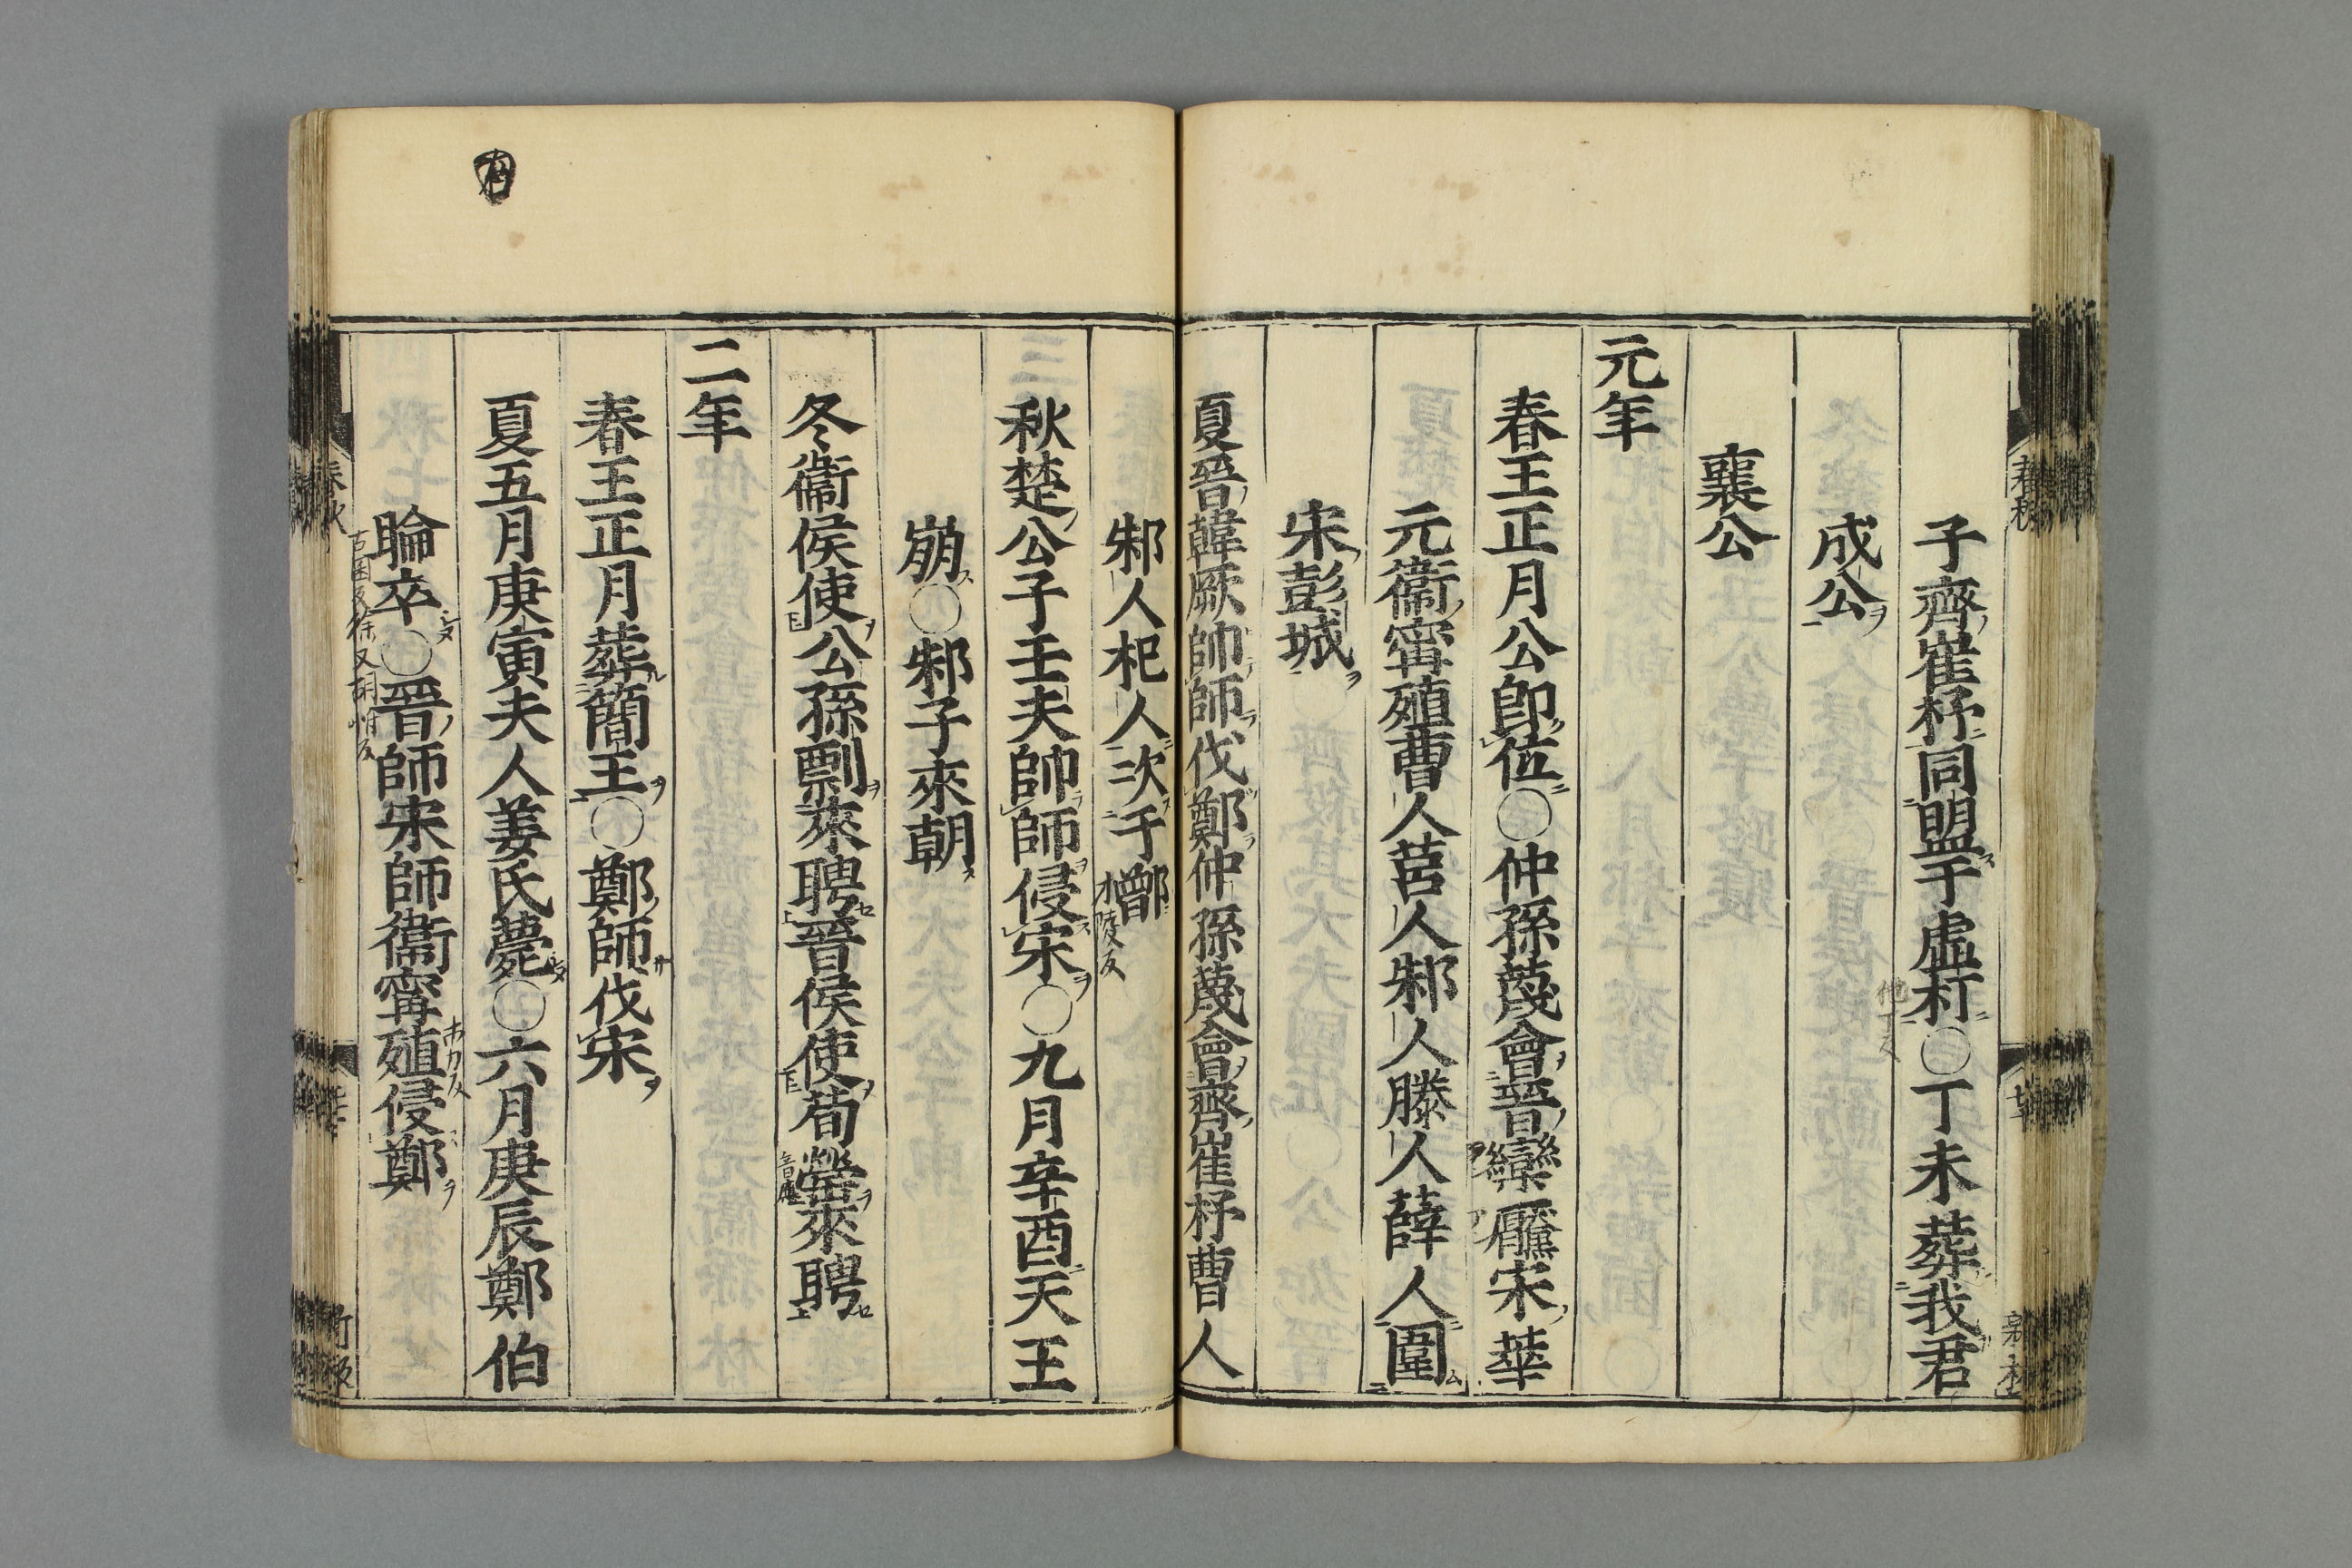 子齊崔杼同盟于虛朾○丁未葬我君
成公
襄公
元年
春王正月公卽位○仲孫蔑會晉欒黶宋華
元衞甯殖曹人莒人邾人滕人薛人圍
宋彭城
夏晉韓厥帥師伐鄭仲孫蔑會齊崔杼曹人
邾人杞人次于鄫
秋楚公子壬夫帥師侵宋○九月辛酉天王
崩○邾子來朝
冬衞侯使公孫剽來聘晉侯使荀罃來聘
二年
春王正月葬簡王○鄭師伐宋
夏五月庚寅夫人姜氏薨○六月庚辰鄭伯
睔卒○晉師宋師衞甯殖侵鄭
春秋